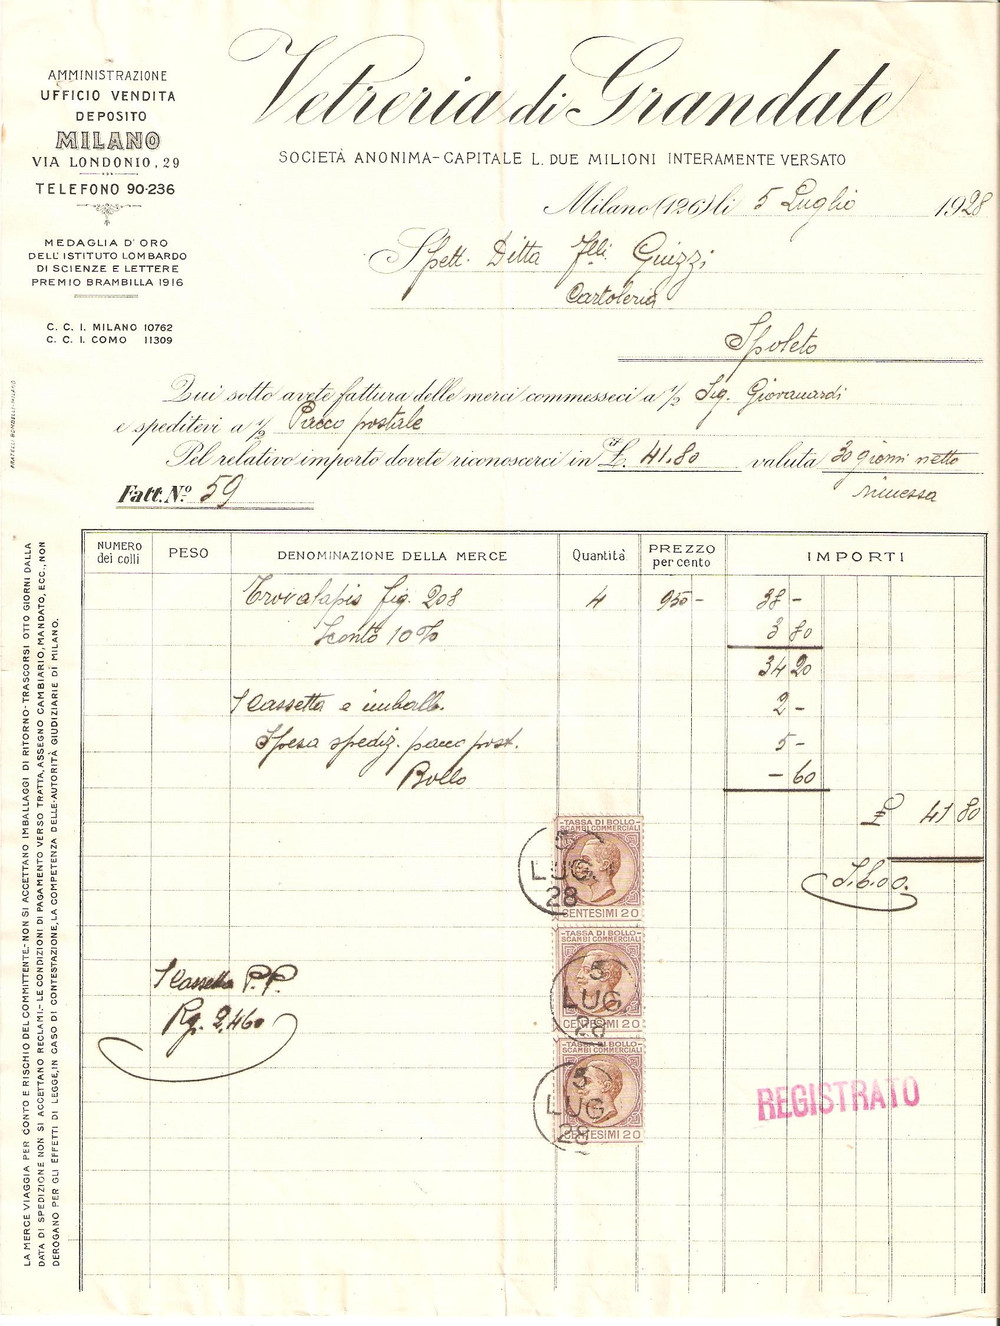 AMMINISTRAZIONE
UFFICIO VENDITA
DEPOSITO
MILANO
VIA LONDONIO, 29
TELEFONO 90-236
MEDAGLIA D'ORO
DELL'ISTITUTO LOMBARDO
DI SCIENZE E LETTERE
PREMIO BRAMBILLA 1916
C. C. I. MILANO 10762
C. C. I. COMO 11309
Vetreria di Grandate
SOCIETÀ ANONIMA-CAPITALE L. DUE MILIONI INTERAMENTE VERSATO
Milano (126) li 5 Luglio 1928
Spett. Ditta F.lli Guizzi
Cartoleria
Spoleto
Qui sotto avete fattura delle merci commesseci a 1/2 Sig. Giovanardi
e speditevi a 1/2 Pacco postale
Pel relativo importo dovete riconoscerci in £. 41.80 valuta 30 giorni netto
rimessa
Fatt. Nº 59
FRATELLI BOMBELLI-MILANO
NUMERO dei colli PESO DENOMINAZIONE DELLA MERCE Quantità PREZZO per cento IMPORTI
fig. 208 4 950 - 38 -
Sconto 10% 3 80
34 20
1 Cassetta e imball. 2 -
Spesa spediz. pacco post. 5 -
Bollo - 60
£ 41 80
S.b.oo.
TASSA DI BOLLO
SCAMBI COMMERCIALI
CENTESIMI 20
5
LUG.
28
TASSA DI BOLLO
SCAMBI COMMERCIALI
CENTESIMI 20
5
LUG.
28
TASSA DI BOLLO
SCAMBI COMMERCIALI
CENTESIMI 20
5
LUG.
28
1 Cassetta P.P.
Kg. 2,460
REGISTRATO
LA MERCE VIAGGIA PER CONTO E RISCHIO DEL COMMITTENTE.- NON SI ACCETTANO IMBALLAGGI DI RITORNO-TRASCORSI OTTO GIORNI DALLA
DATA DI SPEDIZIONE NON SI ACCETTANO RECLAMI.- LE CONDIZIONI DI PAGAMENTO VERSO TRATTA, ASSEGNO CAMBIARIO, MANDATO, ECC., NON
DEROGANO PER GLI EFFETTI DI LEGGE, IN CASO DI CONTESTAZIONE, LA COMPETENZA DELLE AUTORITÀ GIUDIZIARIE DI MILANO.